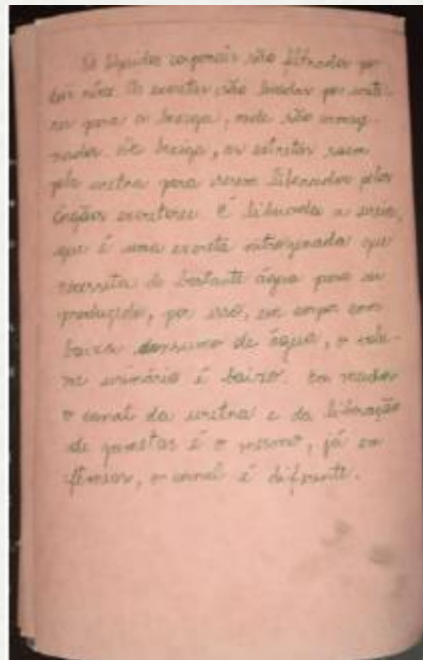 Os líquidos corporais são filtrados por
dois rins. Os excretas são levados por urete-
res para a bexiga, onde são armaz-
nados. Da bexiga, os excretas saem
pela uretra para serem liberados pelos
órgãos excretores. É liberada a ureia,
que é uma excreta nitrogenada que
necessita de bastante água para ser
produzida, por isso, em corpos com
baixo consumo de água, o volu-
me urinário é baixo. Em machos
o canal da uretra e da liberação
de gametas é o mesmo, já em
fêmeas, o canal é diferente.